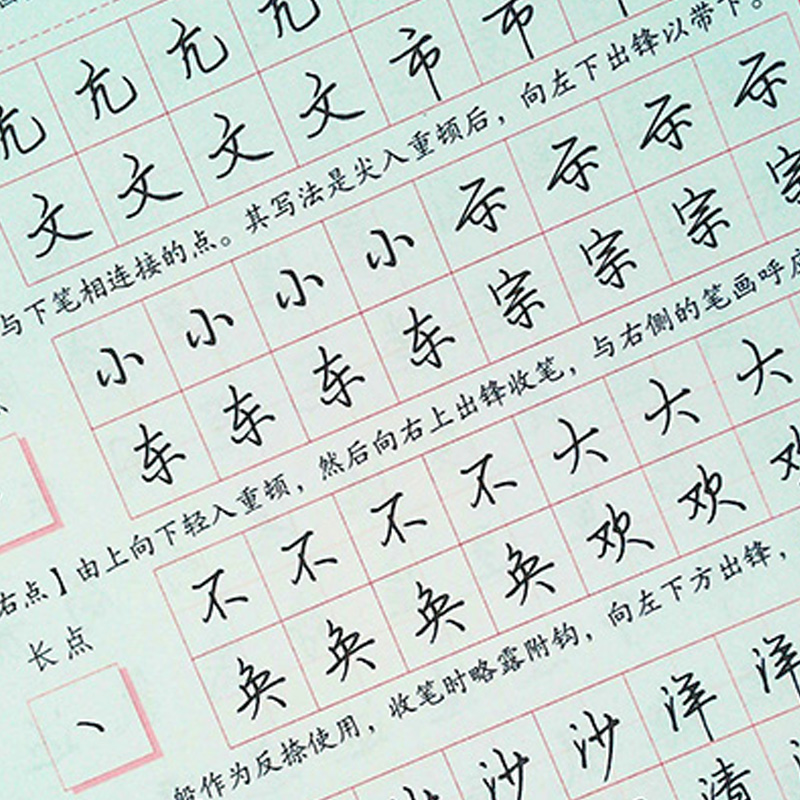 亢 亢 亢 亢
文 文 文 文 市 市
与下笔相连接的点。其写法是尖入重顿后，向左下出锋以带下。
小 小 小 小 示 示 示 示
东 东 东 东 宗 宗 宗 宗
右点】由上向下轻入重顿，然后向右上出锋收笔，与右侧的笔画呼应
不 不 不 不 大 大 大
奂 奂 奂 奂 欢 欢 欢
长点
般作为反捺使用，收笔时略露附钩，向左下方出锋，
沙 沙 沙 洋 洋
清